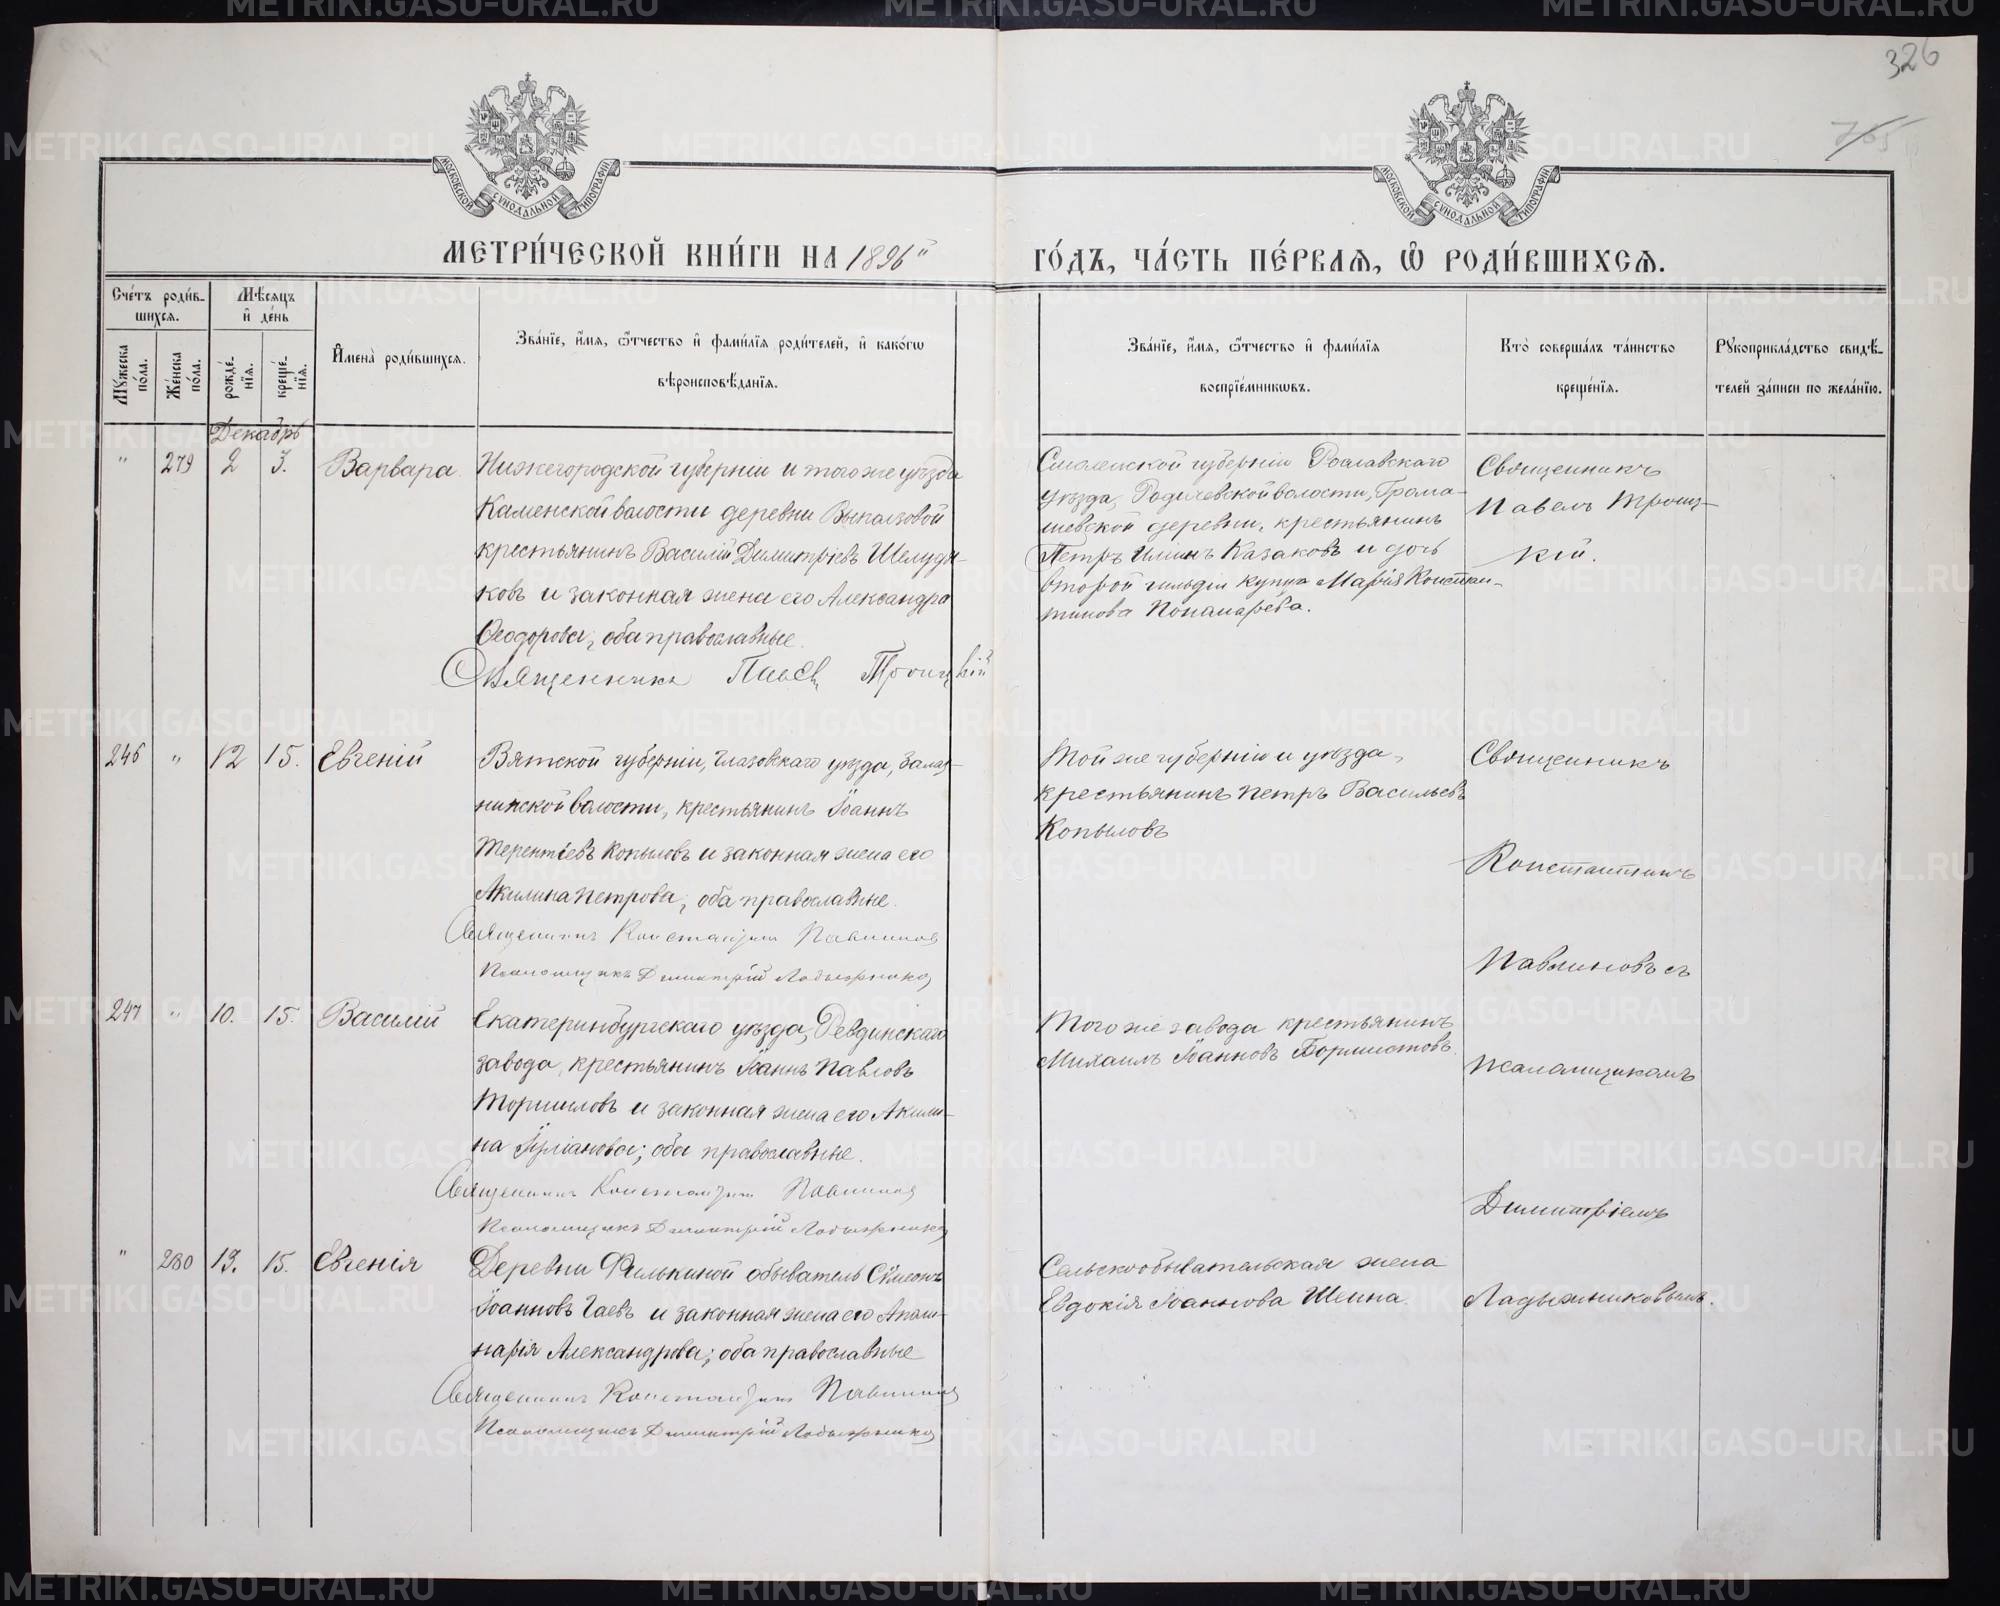 326
МОСКОВСКОЙ СѴНОДАЛЬНОЙ ТИПОГРАФІИ
МОСКОВСКОЙ СѴНОДАЛЬНОЙ ТИПОГРАФІИ
МЕТРИ́ЧЕСКОЙ КНИ́ГИ НА 1896й
ГО́ДЪ, ЧА́СТЬ ПЕ́РВАѦ, Ѡ҆ РОДИ́ВШИХСѦ.
Сче́тъ роди́в-
шихсѧ.
Мѣ́сѧцъ
и҆ де́нь
Мꙋ́жеска по́ла.
Же́нска по́ла.
рожде́-
нїѧ.
креще́-
нїѧ.
И҆мена̀ роди́вшихсѧ.
Зва́нїе, и҆́мѧ, ѻ҆́тчество и҆ фами́лїѧ роди́телей, и҆ како́гѡ
вѣроисповѣ́данїѧ.
Зва́нїе, и҆́мѧ, ѻ҆́тчество и҆ фами́лїѧ
воспрїе́мникѡвъ.
Кто̀ соверша́лъ та́инство
креще́нїѧ.
Рꙋкоприкла́дство свидѣ́-
телей за́писи по жела́нїю.
Декабрь
" 279 2 3. Варвара.
Нижегородской губерніи и того же уѣзда
Каменской волости деревни Выползовой
крестьянинъ Василій Димитріевъ Шелудя-
ковъ и законная жена его Александра
Ѳеодорова, оба православные.
Священникъ Павелъ Троицкій
Смоленской губерніи Рославскаго
уѣзда, Радичевской волости, Грома-
шевской деревни, крестьянинъ
Петръ Ильинъ Казаковъ и дочь
второй гильдіи купца Марія Констан-
тинова Понамарева.
Священникъ
Павелъ Троиц-
кій.
246 " 12 15. Евгеній
Вятской губерніи, Глазовскаго уѣзда,
волости, крестьянинъ Іоаннъ
Терентіевъ Копыловъ и законная жена его
Акилина Петрова, оба православные.
Священникъ Константинъ Павлиновъ
Псаломщикъ Димитрій Ладыжниковъ
Той же губерніи и уѣзда,
крестьянинъ Петръ Васильевъ
Копыловъ
Священникъ
Константинъ
Павлиновъ съ
псаломщикомъ
Димитріемъ
Ладыжниковымъ.
247 " 10. 15. Василій
Екатеринбургскаго уѣзда, Ревдинскаго
завода, крестьянинъ Іоаннъ Павловъ
Торшиловъ и законная жена его Акили-
на Іуліанова; оба православные.
Священникъ Константинъ Павлиновъ
Псаломщикъ Димитрій Ладыжниковъ
Того же завода крестьянинъ
Михаилъ Іоанновъ
" 280 13. 15. Евгенія
Деревни Филькиной обыватель Сѵмеонъ
Іоанновъ Гаевъ и законная жена его Апали-
нарія Александрова; оба православные
Священникъ Константинъ Павлиновъ
Псаломщикъ Димитрій Ладыжниковъ
Сельскообывательская жена
Евдокія Іоаннова Шеина.
METRIKI.GASO-URAL.RU